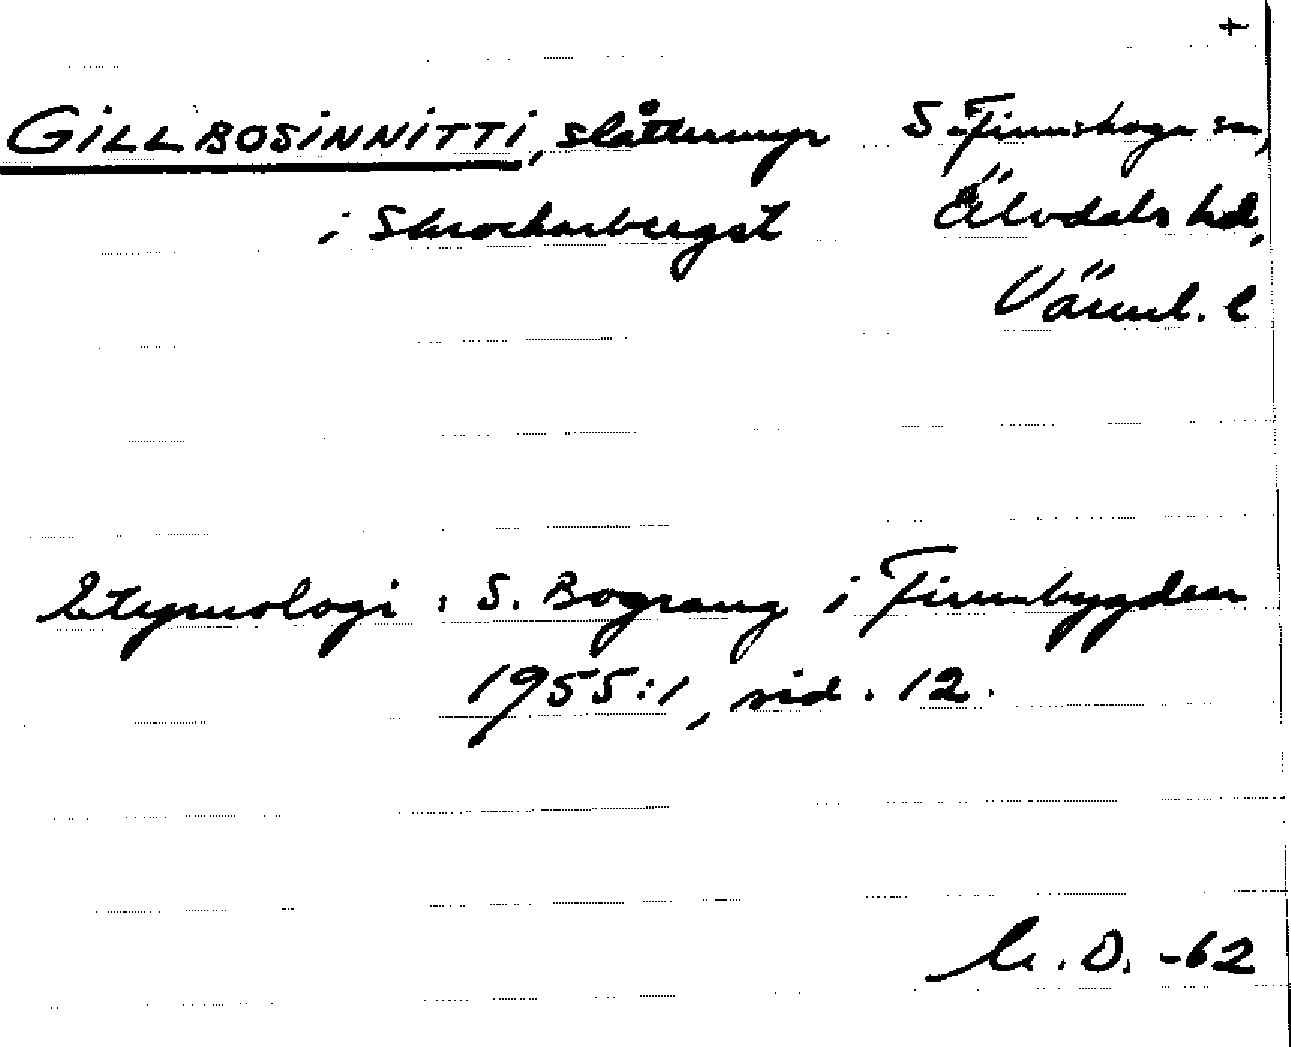 +
GILLBOSINNITTI, slåttermyr S. Finnskoga sn,
i Skrockarbergst Älvdals hd,
Värml. l
Etymologi: S. Bograng i Finnbygden
1955:1, sid. 12.
D. -62